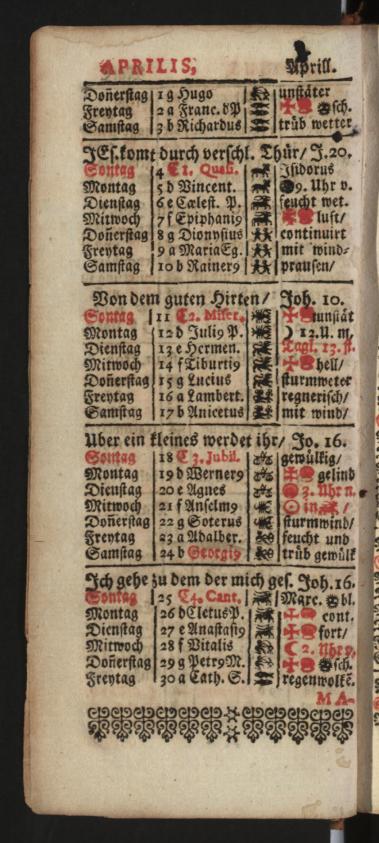 APRILIS, Aprill.
Donerstag 1 g Hugo unstäter
Freytag 2 a Franc. d P sch.
Samstag 3 b Richardus trüb wetter
JEs. komt durch verschl. Thür / J. 20.
Sontag 4 C 1. Quas. Isidorus
Montag 5 d Vincent. 9. Uhr v.
Dienstag 6 e Cælest. P. feucht wet.
Mitwoch 7 f Epiphani9 lust/
Doñerstag 8 g Dionysius continuirt
Freytag 9 a Maria Eg. mit wind-
Samstag 10 b Rainer9 prausen/
Von dem guten Hirten / Joh. 10.
Sontag 11 C 2. Miser. unstät
Montag 12 d Juli9 P. 12. U. m.
Dienstag 13 e Hermen. Tagl. 13. st.
Mitwoch 14 f Tiburti9 hell/
Doñerstag 15 g Lucius sturmweter
Freytag 16 a Lambert. regnerisch/
Samstag 17 b Anicetus mit wind/
Uber ein kleines werdet ihr / Jo. 16.
Sontag 18 C 3. Jubil. gewülkig/
Montag 19 d Werner9 gelind
Dienstag 20 e Agnes 3. Uhr n.
Mitwoch 21 f Anselm9 in
Doñerstag 22 g Soterus sturmwind/
Freytag 23 a Adalber. feucht und
Samstag 24 b Georgi9 trüb gewülk
Ich gehe zu dem der mich ges. Joh. 16.
Sontag 25 C 4. Cant. Marc. bl.
Montag 26 d Cletus P. cont.
Dienstag 27 e Anastasi9 fort/
Mitwoch 28 f Vitalis 2. Uhr v.
Doñerstag 29 g Petr9 M. sch.
Freytag 30 a Cath. S. regenwolkẽ.
MA-